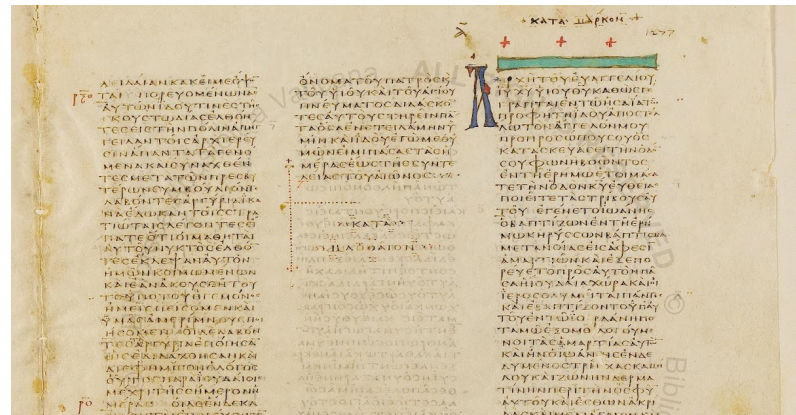 ΚΑΤΑ ΜΑΡΚΟΝ
1277
ΛΙΛΑΙΑΝΚΑΚΕΙΜΕΟΨΟ
ΤΑΙ ΠΟΡΕΥΟΜΕΝΩΝΔΕ
ΑΥΤΩΝΙΔΟΥΤΙΝΕϹΤΗϹ
ΚΟΥϹΤΩΔΙΑϹΕΛΘΟΝ
ΤΕϹΕΙϹΤΗΝΠΟΛΙΝΑΠΗ
ΓΓΕΙΛΑΝΤΟΙϹΑΡΧΙΕΡΕΥ
ϹΙΝΑΠΑΝΤΑΤΑΓΕΝΟ
ΜΕΝΑΚΑΙϹΥΝΑΧΘΕΝ
ΤΕϹΜΕΤΑΤΩΝΠΡΕϹΒΥ
ΤΕΡΩΝϹΥΜΒΟΥΛΙΟΝΤΕ
ΛΑΒΟΝΤΕϹΑΡΓΥΡΙΑΙΚΑ
ΝΑΕΔΩΚΑΝΤΟΙϹϹΤΡΑ
ΤΙΩΤΑΙϹΛΕΓΟΝΤΕϹΕΙ
ΠΑΤΕΟΤΙΟΙΜΑΘΗΤΑΙ
ΑΥΤΟΥΝΥΚΤΟϹΕΛΘΟ
ΤΕϹΕΚΛΕΨΑΝΑΥΤΟΝ
ΗΜΩΝΚΟΙΜΩΜΕΝΩΝ
ΚΑΙΕΑΝΑΚΟΥϹΘΗΤΟΥ
ΤΟΥΠΟΤΟΥΗΓΕΜΟΝΟϹ
ΗΜΕΙϹΠΕΙϹΟΜΕΝΚΑΙ
ΥΜΑϹΑΜΕΡΙΜΝΟΥϹΠΟΙ
ΗϹΟΜΕΝ ΟΙΔΕΛΑΒΟΝ
ΤΕϹΑΡΓΥΡΙΑΕΠΟΙΗϹΑ
ΩϹΕΔΙΔΑΧΘΗϹΑΝΚΑΙ
ΔΙΕΦΗΜΙϹΘΗΟΛΟΓΟϹ
ΟΥΤΟϹΠΑΡΑΙΟΥΔΑΙΟΙϹ
ΜΕΧΡΙΤΗϹϹΗΜΕΡΟΝΗ
ΜΕΡΑϹ ΟΙΔΕΕΝΔΕΚΑ
ΟΝΟΜΑΤΟΥΠΑΤΡΟϹΚ
ΤΟΥΥΙΟΥΚΑΙΤΟΥΑΓΙΟΥ
ΠΝΕΥΜΑΤΟϹΔΙΔΑϹΚΟ
ΤΕϹΑΥΤΟΥϹΤΗΡΕΙΝΠΑ
ΤΑΟϹΑΕΝΕΤΕΙΛΑΜΗΝΥ
ΜΙΝΚΑΙΙΔΟΥΕΓΩΜΕΘΥ
ΜΩΝΕΙΜΙΠΑϹΑϹΤΑϹΗ
ΜΕΡΑϹΕΩϹΤΗϹϹΥΝΤΕ
ΛΕΙΑϹΤΟΥΑΙΩΝΟϹ
ΚΑΤΑ
ΜΑΘΘΑΙΟΝ
ΑΡΧΗΤΟΥΕΥΑΓΓΕΛΙΟΥ
ΙΥΧΥΥΙΟΥΘΥΚΑΘΩϹΓΕ
ΓΡΑΠΤΑΙΕΝΤΩΗϹΑΙΑΤΩ
ΠΡΟΦΗΤΗΙΔΟΥΑΠΟϹΤΕΛ
ΛΩΤΟΝΑΓΓΕΛΟΝΜΟΥ
ΠΡΟΠΡΟϹΩΠΟΥϹΟΥΟϹ
ΚΑΤΑϹΚΕΥΑϹΕΙΤΗΝΟΔΟ
ϹΟΥΦΩΝΗΒΟΩΝΤΟϹ
ΕΝΤΗΕΡΗΜΩΕΤΟΙΜΑϹΑ
ΤΕΤΗΝΟΔΟΝΚΥΕΥΘΕΙΑϹ
ΠΟΙΕΙΤΕΤΑϹΤΡΙΒΟΥϹΑΥ
ΤΟΥ ΕΓΕΝΕΤΟΙΩΑΝΗϹ
ΟΒΑΠΤΙΖΩΝΕΝΤΗΕΡΗ
ΜΩΚΗΡΥϹϹΩΝΒΑΠΤΙϹΜΑ
ΜΕΤΑΝΟΙΑϹΕΙϹΑΦΕϹΙ
ΑΜΑΡΤΙΩΝΚΑΙΕΞΕΠΟ
ΡΕΥΕΤΟΠΡΟϹΑΥΤΟΝΠΑ
ϹΑΗΙΟΥΔΑΙΑΧΩΡΑΚΑΙΟΙ
ΙΕΡΟϹΟΛΥΜΕΙΤΑΙΠΑΝΤΕϹ
ΚΑΙΕΒΑΠΤΙΖΟΝΤΟΥΠΑΥ
ΤΟΥΕΝΤΩΙΟΡΔΑΝΗΠΟ
ΤΑΜΩΕΞΟΜΟΛΟΓΟΥΜΕ
ΝΟΙΤΑϹΑΜΑΡΤΙΑϹΑΥΤΩ
ΚΑΙΗΝΟΙΩΑΝΗϹΕΝΔΕ
ΔΥΜΕΝΟϹΤΡΙΧΑϹΚΑΜΗ
ΛΟΥΚΑΙΖΩΝΗΝΔΕΡΜΑ
ΤΙΝΗΝΠΕΡΙΤΗΝΟϹΦΥ
ΑΥΤΟΥΚΑΙΕϹΘΩΝΑΚΡΙ